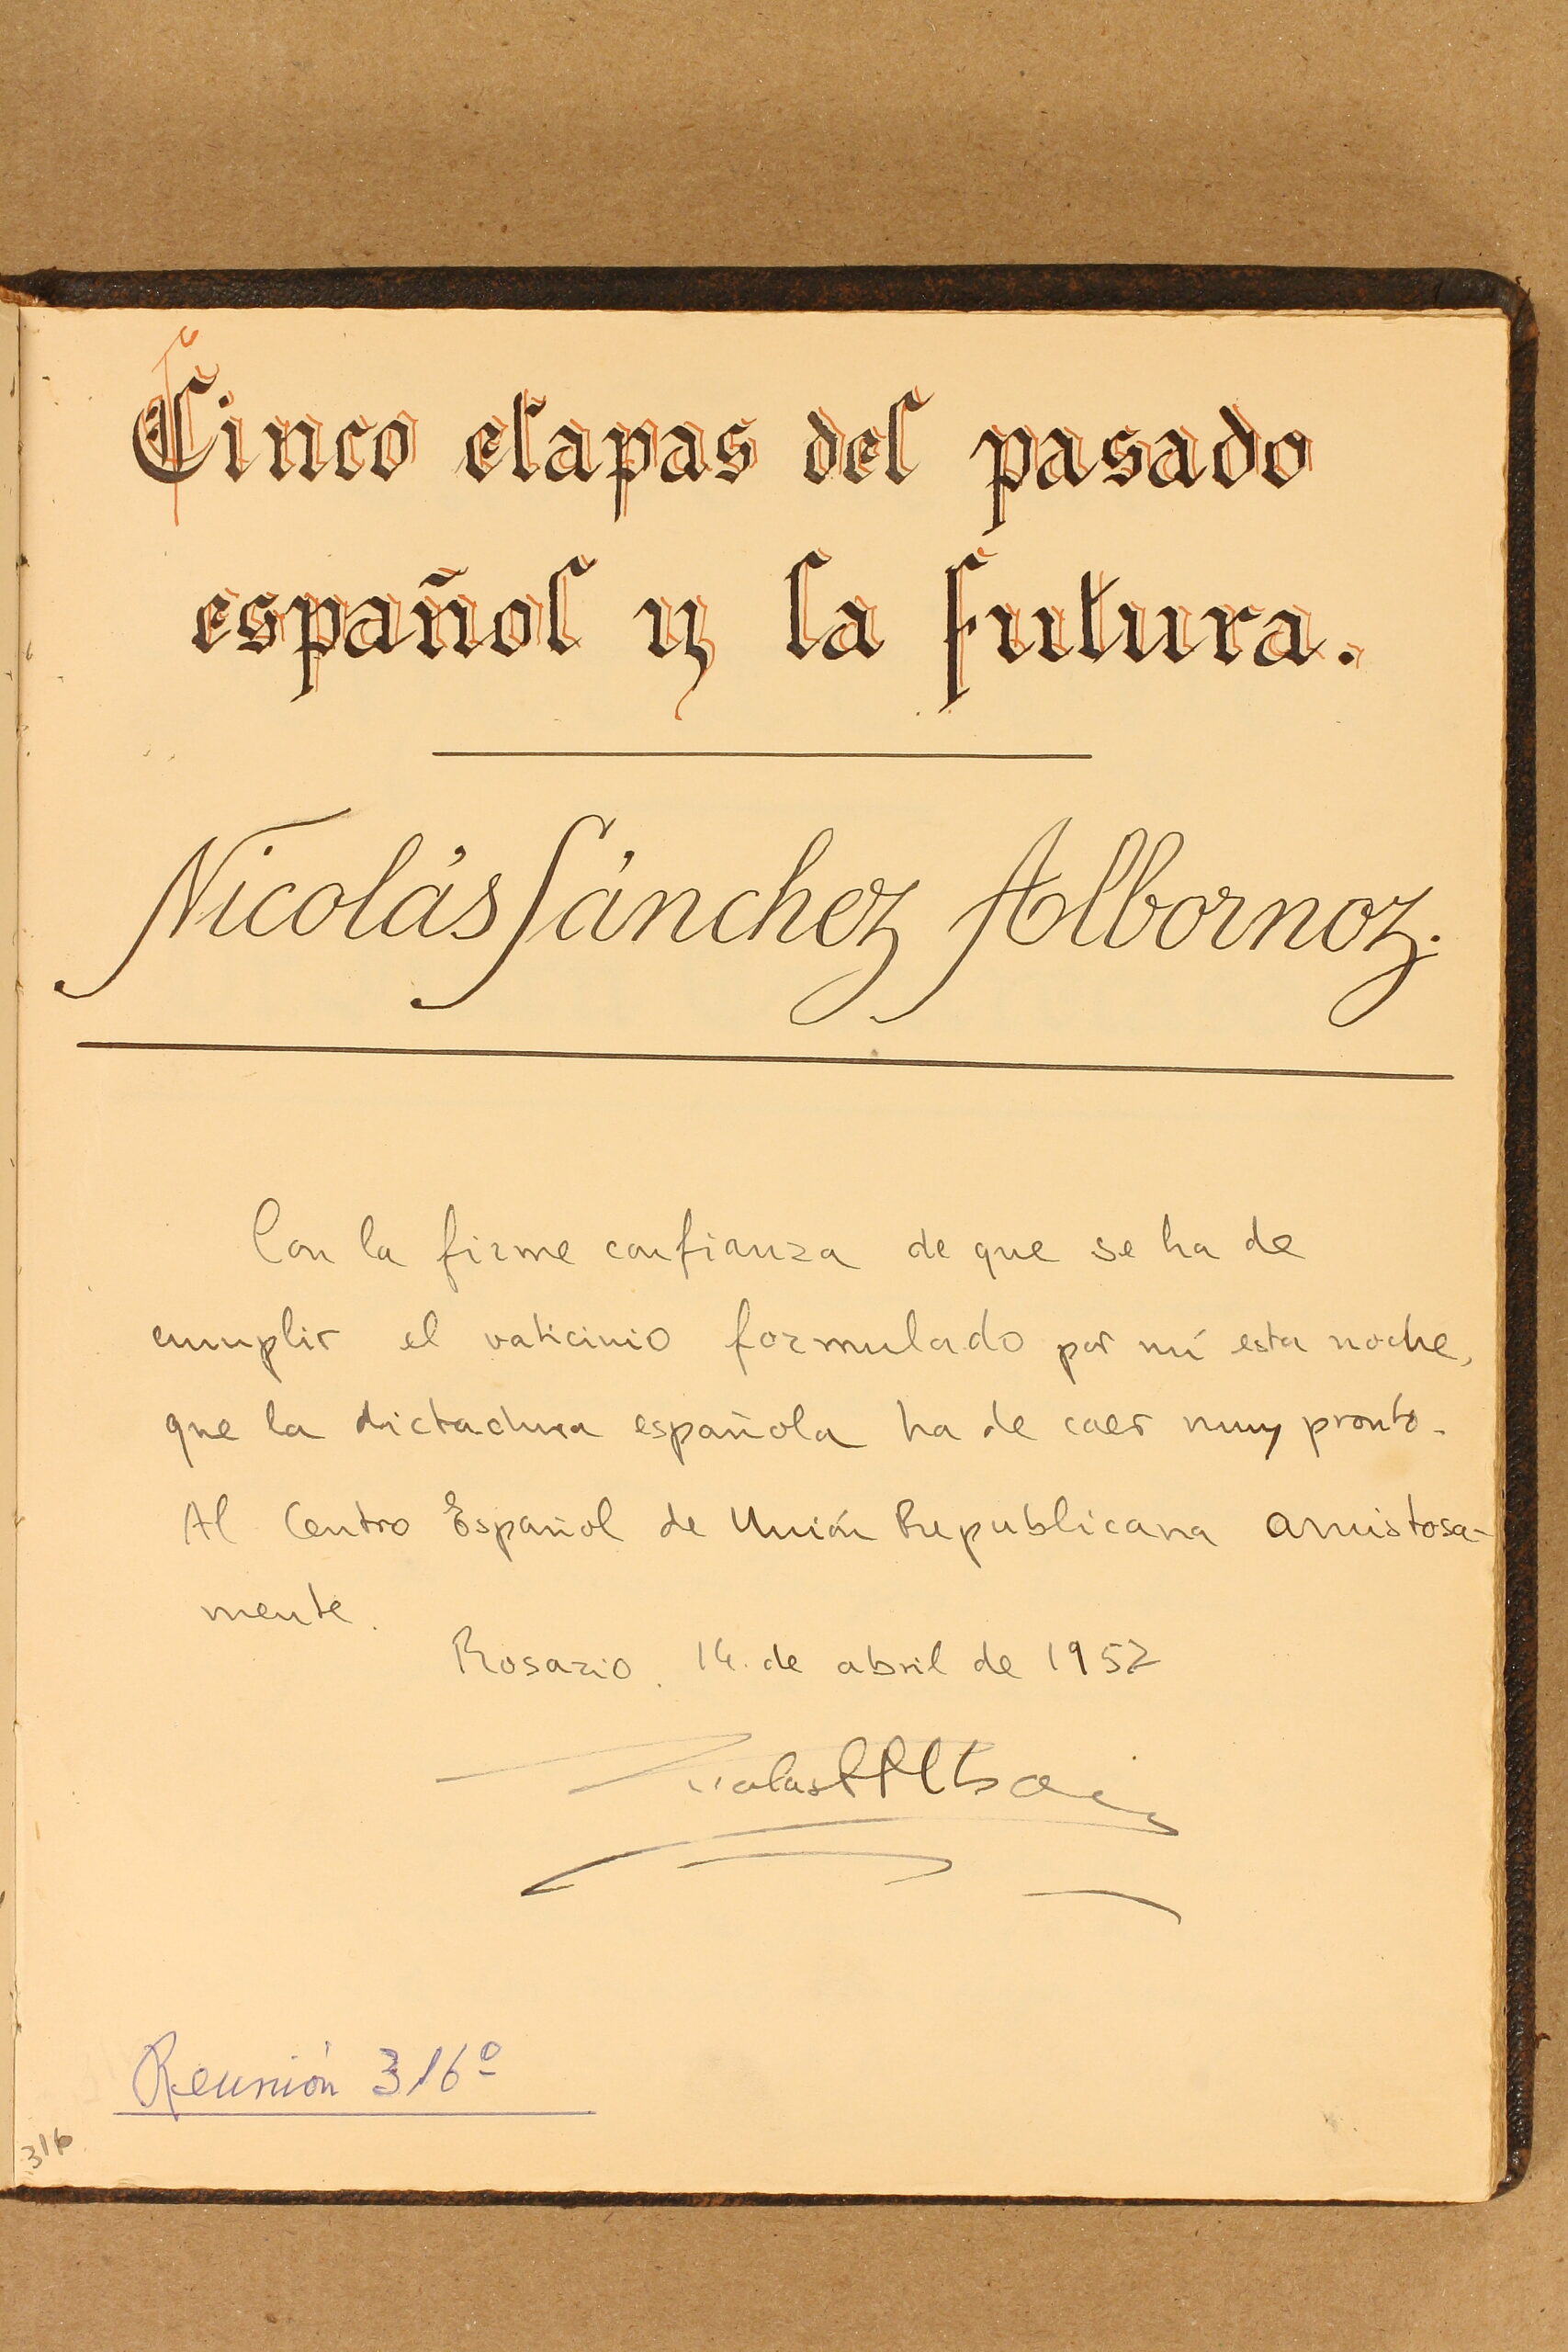 Cinco etapas del pasado
español y la futura.
Nicolás Sánchez Albornoz.
Con la firme confianza de que se ha de
cumplir el vaticinio formulado por mí esta noche,
que la dictadura española ha de caer muy pronto.
Al Centro Español de Unión Republicana amistosa-
mente.
Rosario. 14 de abril de 1952
Reunión 316º
316